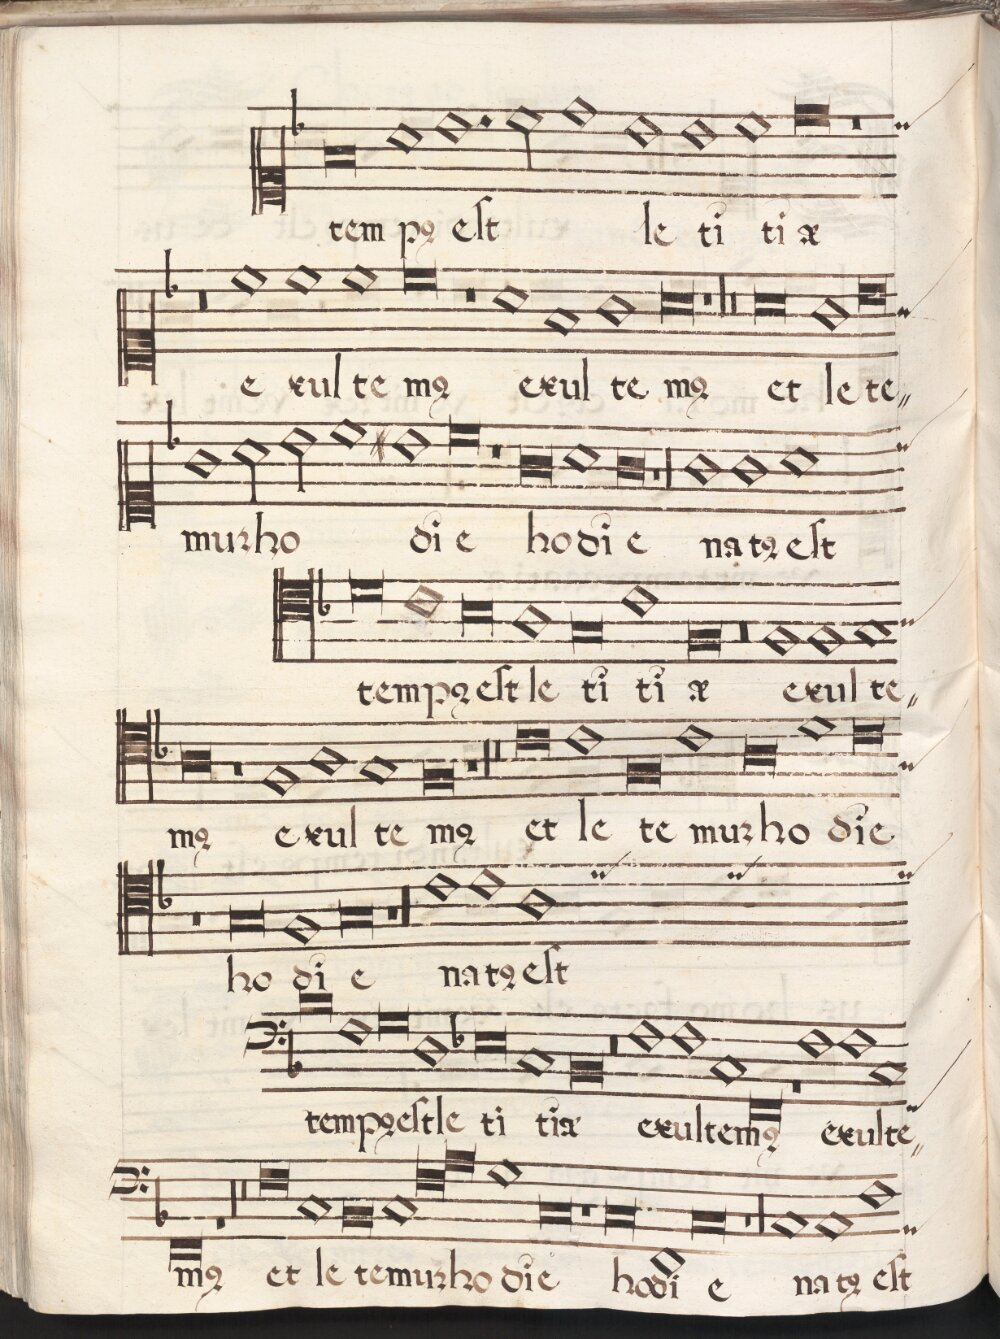 tempꝰ est le ti ti æ
e xul te mꝰ exul te mꝰ et le te
mur ho di e hodi e na tꝰ est
tempꝰ est le ti ti æ exul te
mꝰ exul te mꝰ et le te mur ho die
ho di e na tꝰ est
tempꝰ est le ti tiæ exultemꝰ exulte
mꝰ et le temur ho die hodi e na tꝰ est